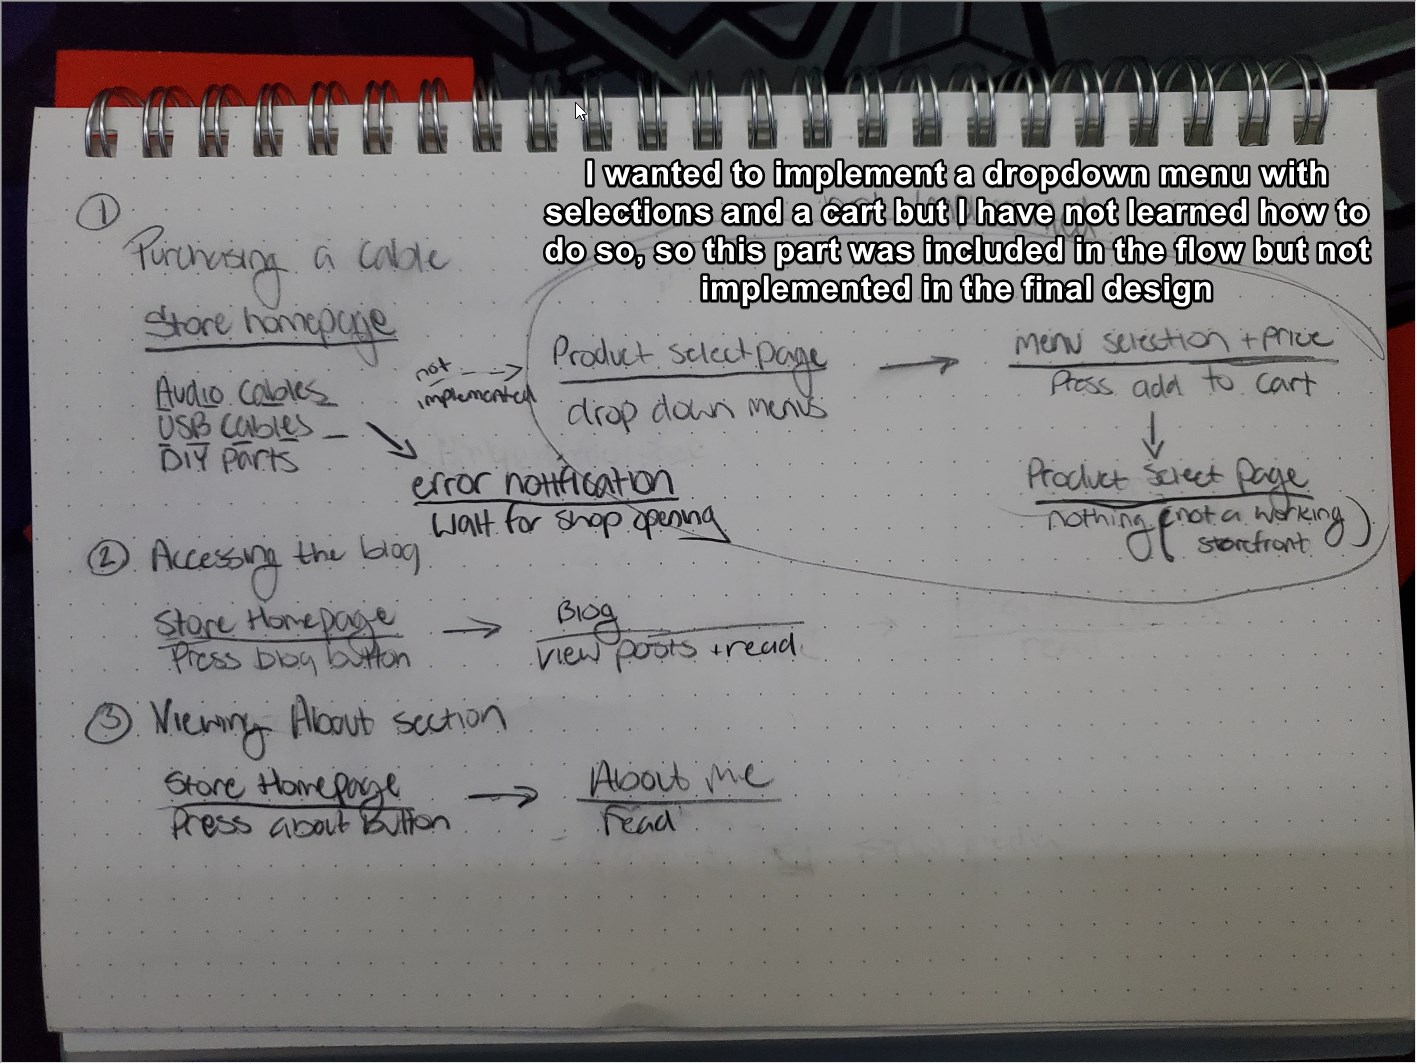 I wanted to implement a dropdown menu with
selections and a cart but I have not learned how to
do so, so this part was included in the flow but not
implemented in the final design
①
Purchasing a cable
Store homepage
Audio Cables
USB Cables
DIY Parts
not
implemented
Product select page
drop down menus
menu selection + price
Press add to cart
Product select page
nothing (not a working
storefront)
error notification
Wait for shop opening
② Accessing the blog
Store Homepage
Press blog button
Blog
view posts + read
③ Viewing About section
Store Homepage
Press about button
About me
read